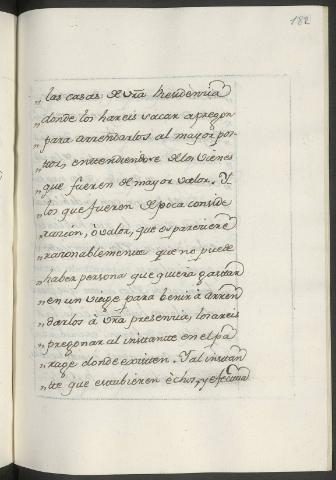 182
„ las casas de vr̃a Residencia
„ donde los hareis vacar a pregon
„ para arrendarlos al mayor pos-
„ tor, entendiendose de los vienes
„ que fueren de mayor valor. Y
„ los que fueren de poca conside
„ razion, ò valor, que os pareciere
„ razonablemente que no puede
„ haber persona que quiera gastar
„ en un viage para benir à arren
„ darlos à vr̃a presencia, los areis
„ pregonar al instante en el pa
„ rage donde existen. Y al instan
„ te que estubieren èchos, y efectua